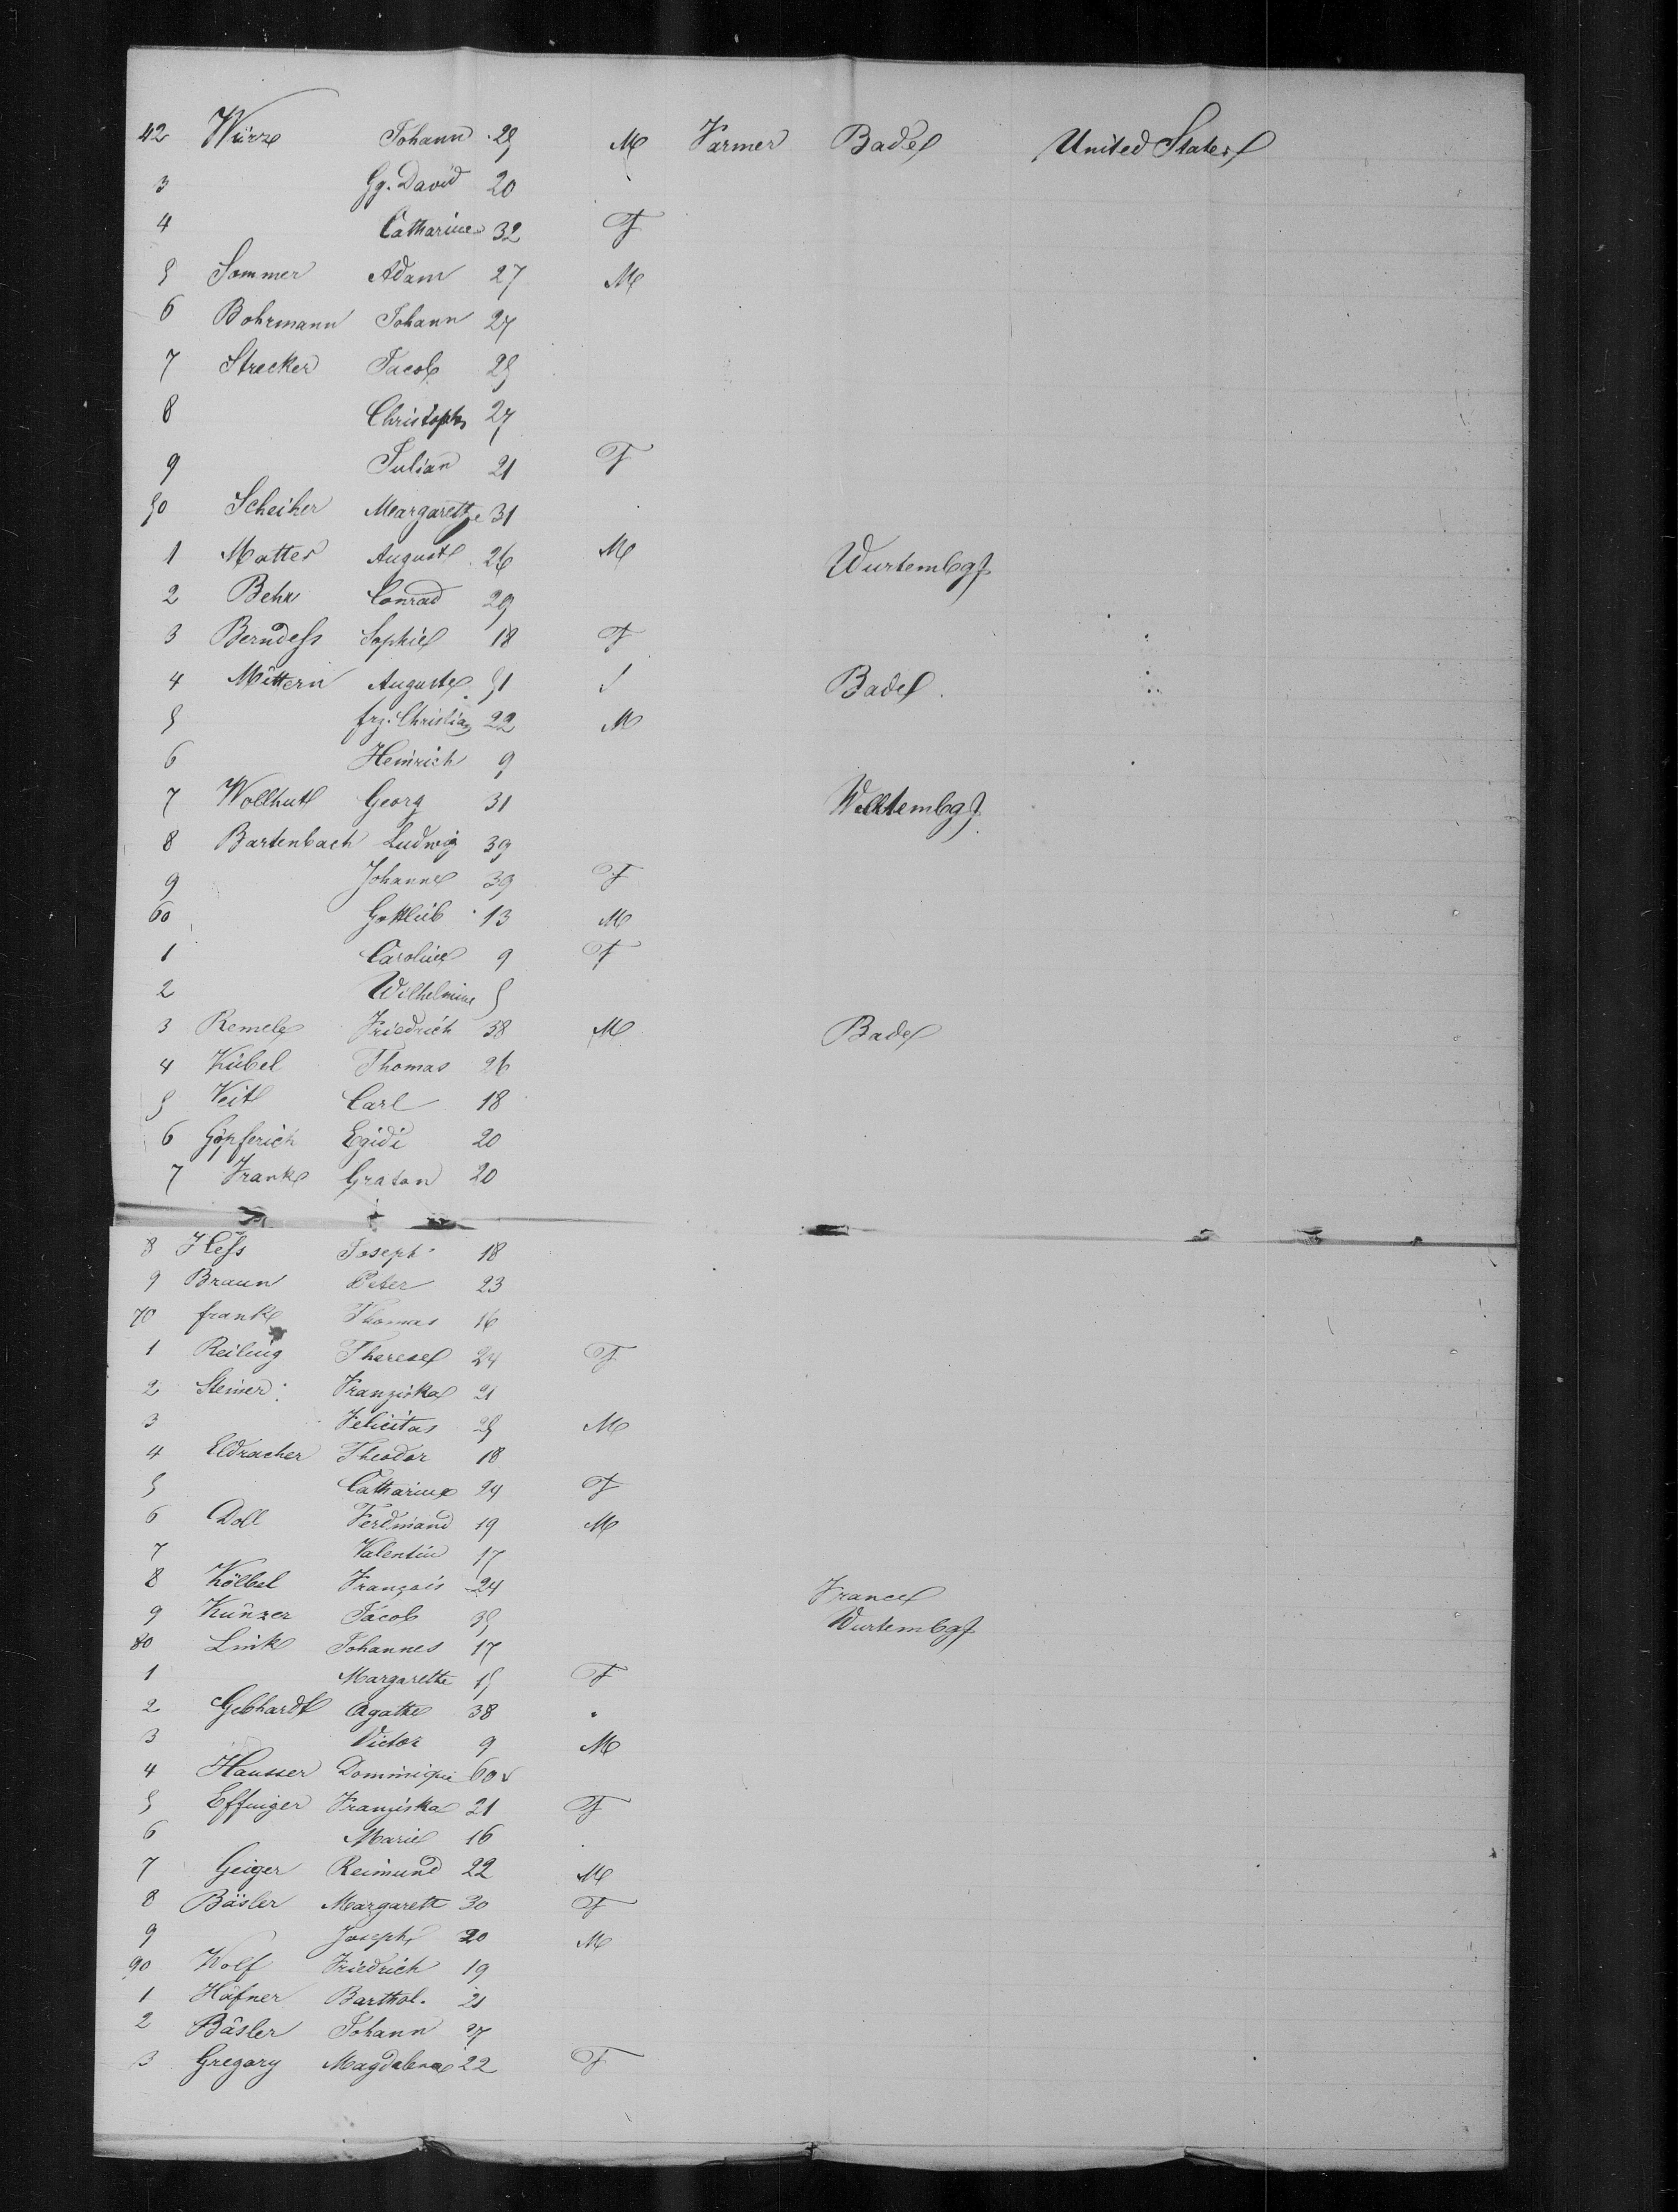 42 Würz Johann 25 M Farmer Bade United States
3 Gg. David 20
4 Catharine 32 F
5 Sommer Adam 27 M
6 Bohrmann Johann 27
7 Strecker Jacob 25
8 Christoph 27
9 Julian 21 F
50 Scheiher Margarethe 31
1 Matter August 26 M Wurtembg
2 Behr Conrad 29
3 Berndess Sophie 18 F
4 Mittern Auguste 51 Bade
5 frz. Christian 22 M
6 Heinrich 9
7 Wollhut Georg 31 Wurtembg
8 Bartenbach Ludwig 39
9 Johanne 39 F
60 Gottlieb 13 M
1 Caroline 9 F
2 Wilhelmine 5
3 Remele Friedrich 38 M Bade
4 Kübel Thomas 26
5 Veit Carl 18
6 Göpferich Egidi 20
7 Frank Graton 20
8 Hess Joseph 18
9 Braun Peter 23
70 frank Thomas 16
1 Reiling Therese 24 F
2 Steiner Franziska 21
3 Felicitas 25 M
4 Eldracher Theodor 18
5 Catharine 24 F
6 Doll Ferdinand 19 M
7 Valentin 17
8 Kölbel François 24 France
9 Kunzer Jacob 35 Wurtembg
80 Link Johannes 17
1 Margarethe 15 F
2 Gebhardt Agathe 38
3 Victor 9 M
4 Hausser Dominique 60
5 Effinger Franziska 21 F
6 Marie 16
7 Geiger Reimund 22 M
8 Bäsler Margareth 30 F
9 Joseph 20 M
90 Wolf Friedrich 19
1 Häfner Barthol. 21
2 Bäsler Johann 27
3 Gregory Magdalena 22 F